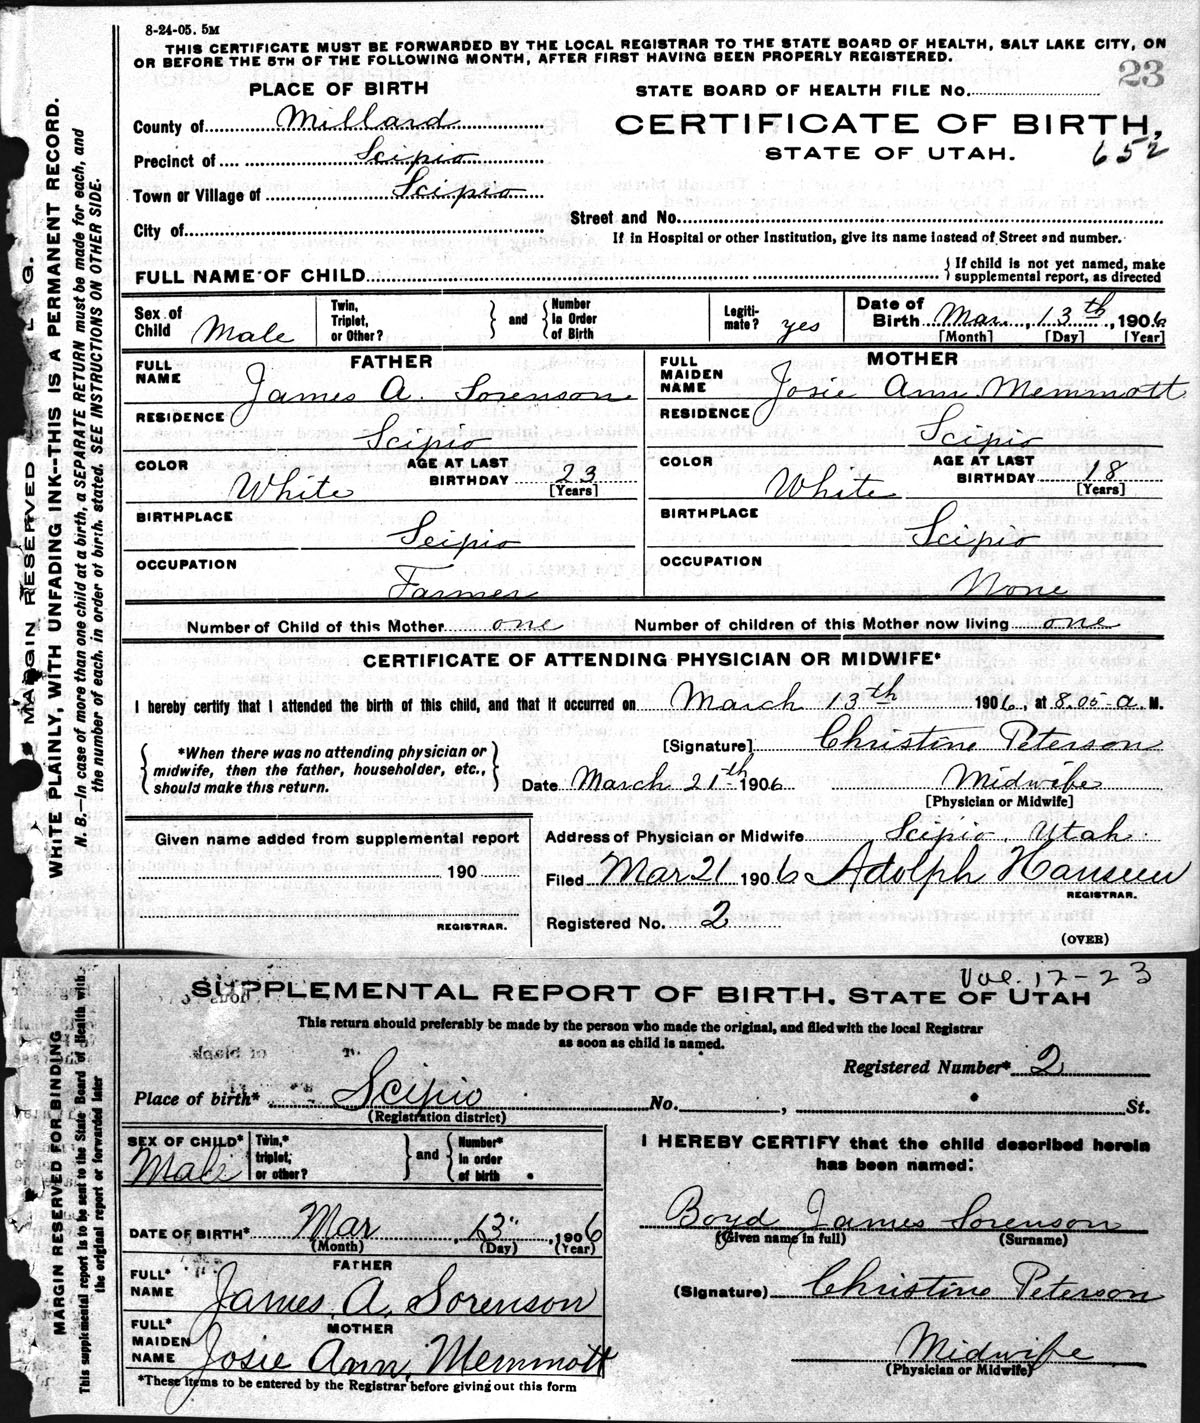 8-24-05. 5M
THIS CERTIFICATE MUST BE FORWARDED BY THE LOCAL REGISTRAR TO THE STATE BOARD OF HEALTH, SALT LAKE CITY, ON
OR BEFORE THE 5TH OF THE FOLLOWING MONTH, AFTER FIRST HAVING BEEN PROPERLY REGISTERED.
23
PLACE OF BIRTH
STATE BOARD OF HEALTH FILE No.
County of Millard
CERTIFICATE OF BIRTH,
Precinct of Scipio
STATE OF UTAH.
652
Town or Village of Scipio
Street and No.
City of
If in Hospital or other Institution, give its name instead of Street and number.
FULL NAME OF CHILD
If child is not yet named, make
supplemental report, as directed
Sex of Child Male
Twin, Triplet, or Other?
and
Number in Order of Birth
Legiti-mate? yes
Date of Birth Mar. 13th, 1906
[Month] [Day] [Year]
FATHER
FULL NAME James A. Sorenson
RESIDENCE Scipio
COLOR White
AGE AT LAST BIRTHDAY 23
[Years]
BIRTHPLACE Scipio
OCCUPATION Farmer
MOTHER
FULL MAIDEN NAME Josie Ann Memmott
RESIDENCE Scipio
COLOR White
AGE AT LAST BIRTHDAY 18
[Years]
BIRTHPLACE Scipio
OCCUPATION None
Number of Child of this Mother one
Number of children of this Mother now living one
CERTIFICATE OF ATTENDING PHYSICIAN OR MIDWIFE*
I hereby certify that I attended the birth of this child, and that it occurred on March 13th 1906, at 8.05 a. M.
[Signature] Christine Peterson
*When there was no attending physician or
midwife, then the father, householder, etc.,
should make this return.
Date March 21th 1906
Midwife
[Physician or Midwife]
Given name added from supplemental report
190
REGISTRAR.
Address of Physician or Midwife Scipio, Utah.
Filed Mar 21 1906 Adolph Hanseen
REGISTRAR.
Registered No. 2
(OVER)
MARGIN RESERVED
WRITE PLAINLY, WITH UNFADING INK--THIS IS A PERMANENT RECORD.
N. B.—In case of more than one child at a birth, a SEPARATE RETURN must be made for each, and
the number of each, in order of birth, stated. SEE INSTRUCTIONS ON OTHER SIDE.
Vol. 12-23
SUPPLEMENTAL REPORT OF BIRTH, STATE OF UTAH
This return should preferably be made by the person who made the original, and filed with the local Registrar
as soon as child is named.
Registered Number* 2
Place of birth* Scipio No. , St.
(Registration district)
SEX OF CHILD* Male
Twin,* triplet, or other?
and
Number* in order of birth
DATE OF BIRTH* Mar 13 1906
(Month) (Day) (Year)
FATHER
FULL* NAME James A. Sorenson
MOTHER
FULL* MAIDEN NAME Josie Ann Memmott
*These items to be entered by the Registrar before giving out this form
I HEREBY CERTIFY that the child described herein
has been named:
Boyd James Sorenson
(Given name in full) (Surname)
(Signature) Christine Peterson
Midwife
(Physician or Midwife)
MARGIN RESERVED FOR BINDING
This supplemental report is to be sent to the State Board of Health with
the original report or forwarded later